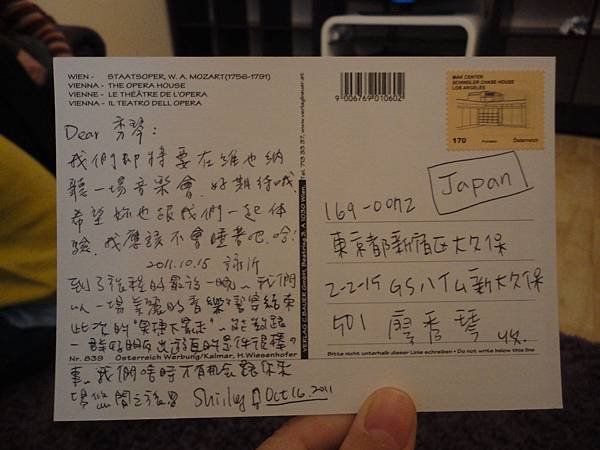 WIEN - STAATSOPER, W. A. MOZART (1756-1791)
VIENNA - THE OPERA HOUSE
VIENNE - LE THÉÂTRE DE L'OPERA
VIENNA - IL TEATRO DELL OPERA
Dear 秀琴:
我們即將要在維也納
聽一場音樂會, 好期待哦
希望妳也跟我們一起体
驗. 我應該不會睡著吧. 哈!
2011.10.15 詠沂
到了旅程的最後一晚、我們
以一場美麗的音樂饗宴結束
此次的
一群好朋友出遊真的是件很棒の
Nr. 839 Österreich Werbung/Kalmar, H. Wiesenhofer
事、我們啥時才有机会跟你來
場悠閒之旅
Shirley Oct 16. 2011
VERLAG C. BAUER GmbH, 1030 Wien, www.verlagbauer.at
9 006769 010602
MAK CENTER
SCHINDLER CHASE HOUSE
LOS ANGELES
170 Österreich
Japan
169-0072
東京都新宿区大久保
2-2-15 GSハイム新大久保
501 廖秀琴 收.
Bitte nicht unterhalb dieser Linie schreiben • Do not write below this line